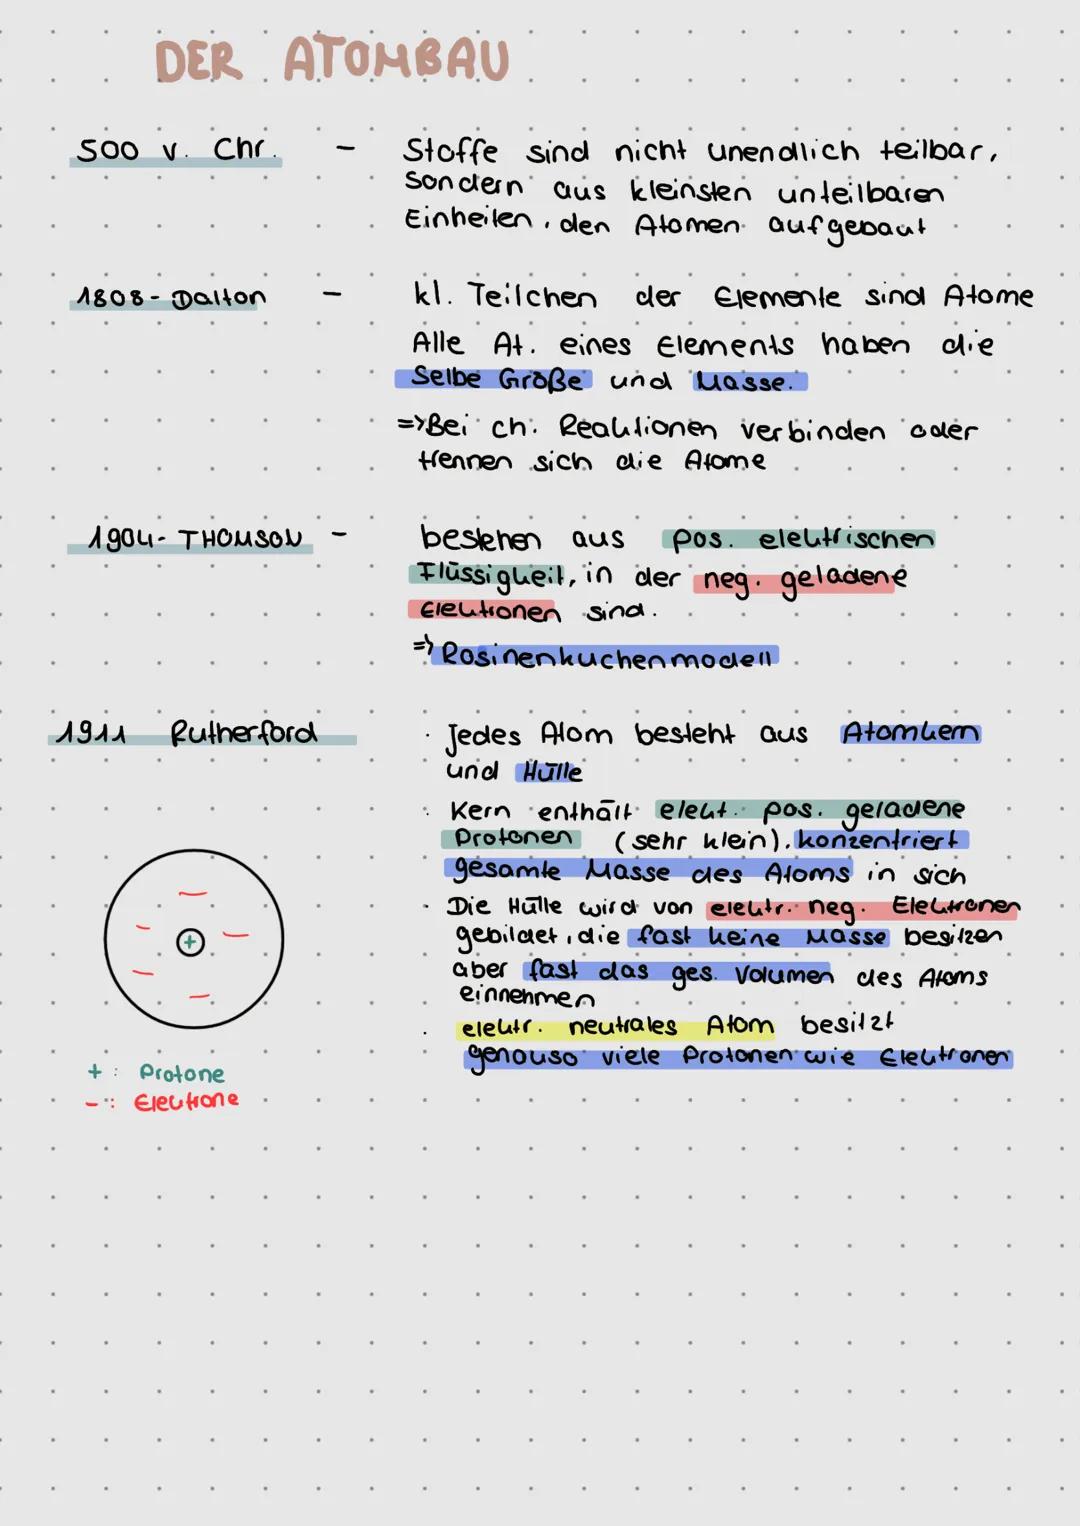 DER ATOMBAU
500 v. Chr. - Stoffe sind nicht unendlich teilbar,
Sondern aus kleinsten unteilbaren
Einheiten, den Atomen aufgebaut
1808 - Dalton - kl. Teilchen der Elemente sind Atome
Alle At. eines Elements haben die
Selbe Größe und Masse.
=> Bei ch. Reaktionen verbinden oder
trennen sich die Atome
1904 - THOMSON - bestehen aus pos. elektrischen
Flüssigkeit, in der neg. geladene
Elektronen sind.
=> Rosinenkuchenmodell
1911 Rutherford · Jedes Atom besteht aus Atomkern
und Hülle
· Kern enthält elekt. pos. geladene
Protonen (sehr klein), konzentriert
gesamte Masse des Atoms in sich
· Die Hülle wird von elektr. neg. Elektronen
gebildet, die fast keine Masse besitzen
aber fast das ges. Volumen des Atoms
einnehmen
· elektr. neutrales Atom besitzt
genauso viele Protonen wie Elektronen
+
+ : Protone
- : Elektrone